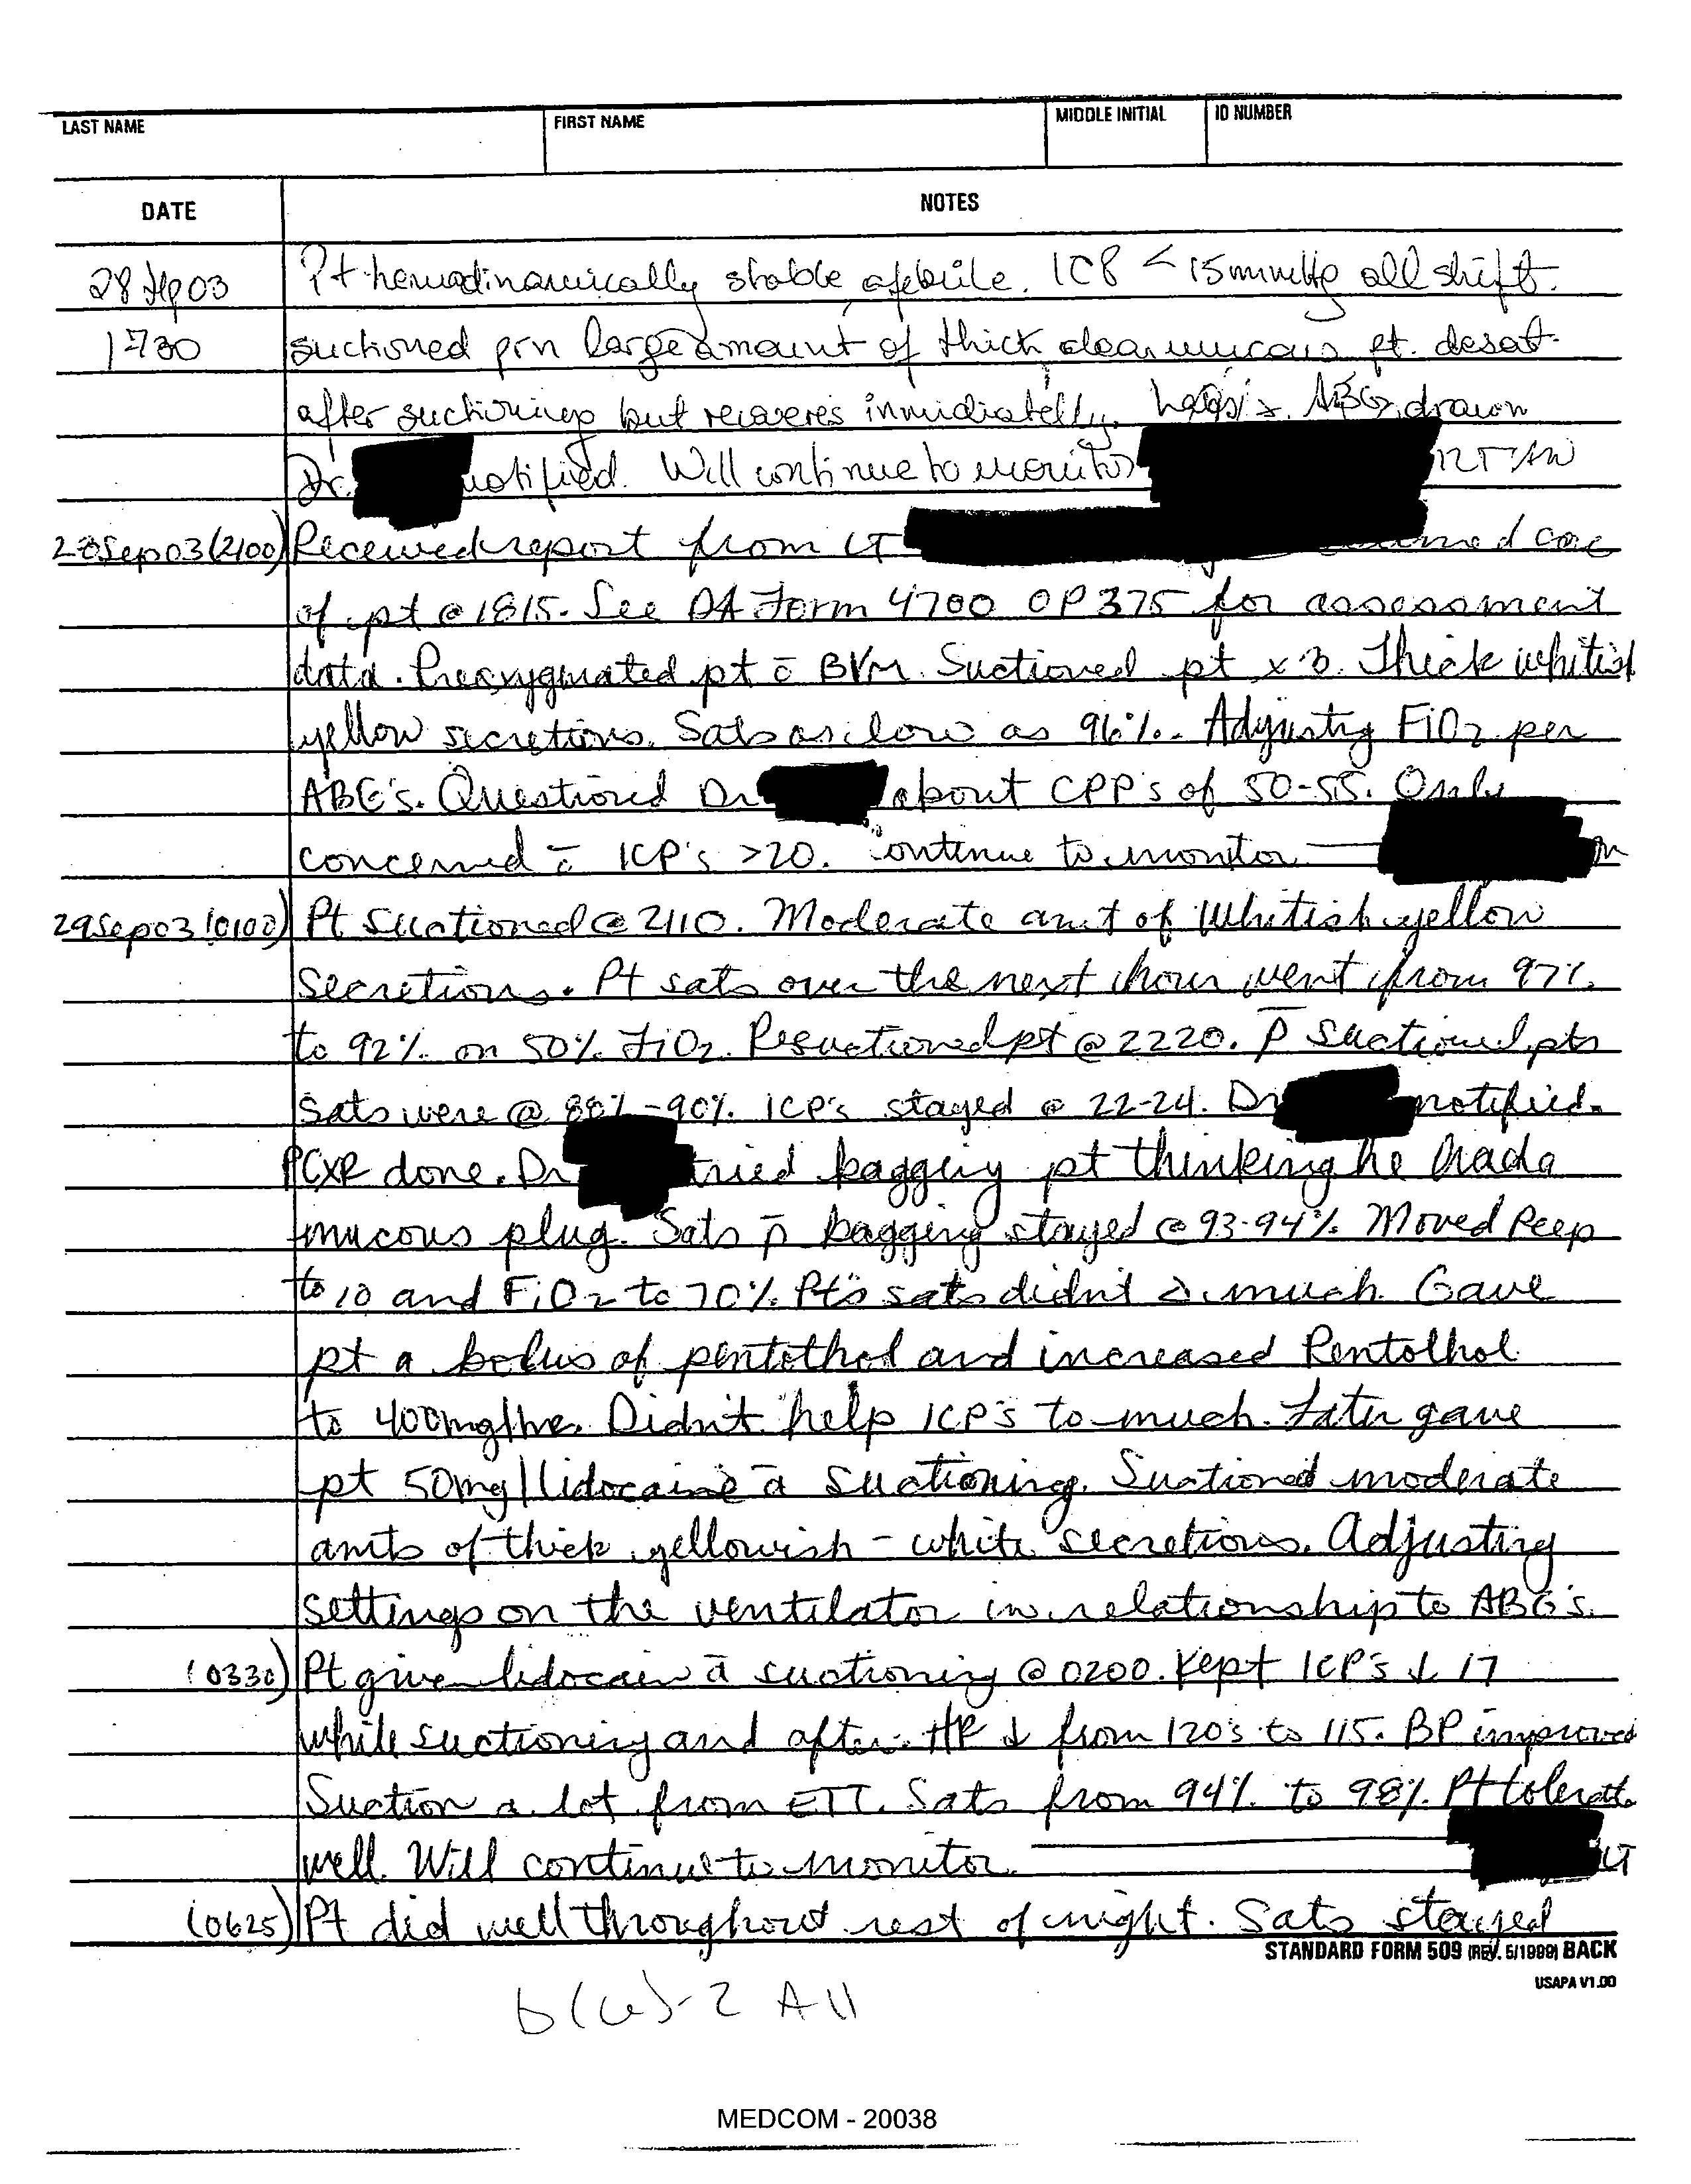 LAST NAME FIRST NAME MIDDLE INITIAL ID NUMBER
DATE NOTES
28 Sep 03 Pt hemodinamically stable, afebrile. ICP < 15 mmHg all shift.
1730 suctioned prn large amount of thick clear mucous pt. desat
after suctioning but recoveres inmidiatelly. ABG drawn
Dr. notified. Will continue to monitor
28Sep03 (2100) Received report from LT care
of pt @ 1815. See DA Form 4700 OP 375 for assessment
data. Preoxygnated pt c̄ BVM. Suctioned pt x 3. Thick whitish
yellow secretions. Sats as low as 96%. Adjustig FiO2 per
ABG's. Questioned Dr about CPP's of 50-55. Only
concerned c̄ ICP's >20. Continue to monitor
29Sep03 (0100) Pt Suctioned @ 2110. Moderate amt of Whitish yellow
Secretions. Pt sats over the next hour went from 97%
to 92% on 50% FiO2. Resuctioned pt @ 2220. p̄ Suctioned pts
Sats were @ 88%-90%. ICP's stayed @ 22-24. Dr notified.
PCXR done. Dr tried bagging pt thinking he had a
mucous plug. Sats p̄ bagging stayed @ 93-94%. Moved Peep
to 10 and FiO2 to 70%. Pt's sats didn't Δ much. Gave
pt a bolus of pentothol and increased Pentothol
to 400mg/hr. Didn't help ICP's to much. Later gave
pt 50mg lidocaine ā suctioning. Suctioned moderate
amts of thick yellowish - white secretions. Adjusting
settings on the ventilator in relationship to ABG's.
(0330) Pt given lidocain ā suctioning @ 0200. Kept ICP's ↓ 17
while suctioning and after. HR ↓ from 120's to 115. BP improved
Suction a lot from ETT. Sats from 94% to 98%. Pt tolerate
well. Will continue to monitor. LT
(0625) Pt did well throughout rest of night. Sats stayed
STANDARD FORM 509 (REV. 5/1999) BACK
USAPA V1.00
b(6)-2 All
MEDCOM - 20038